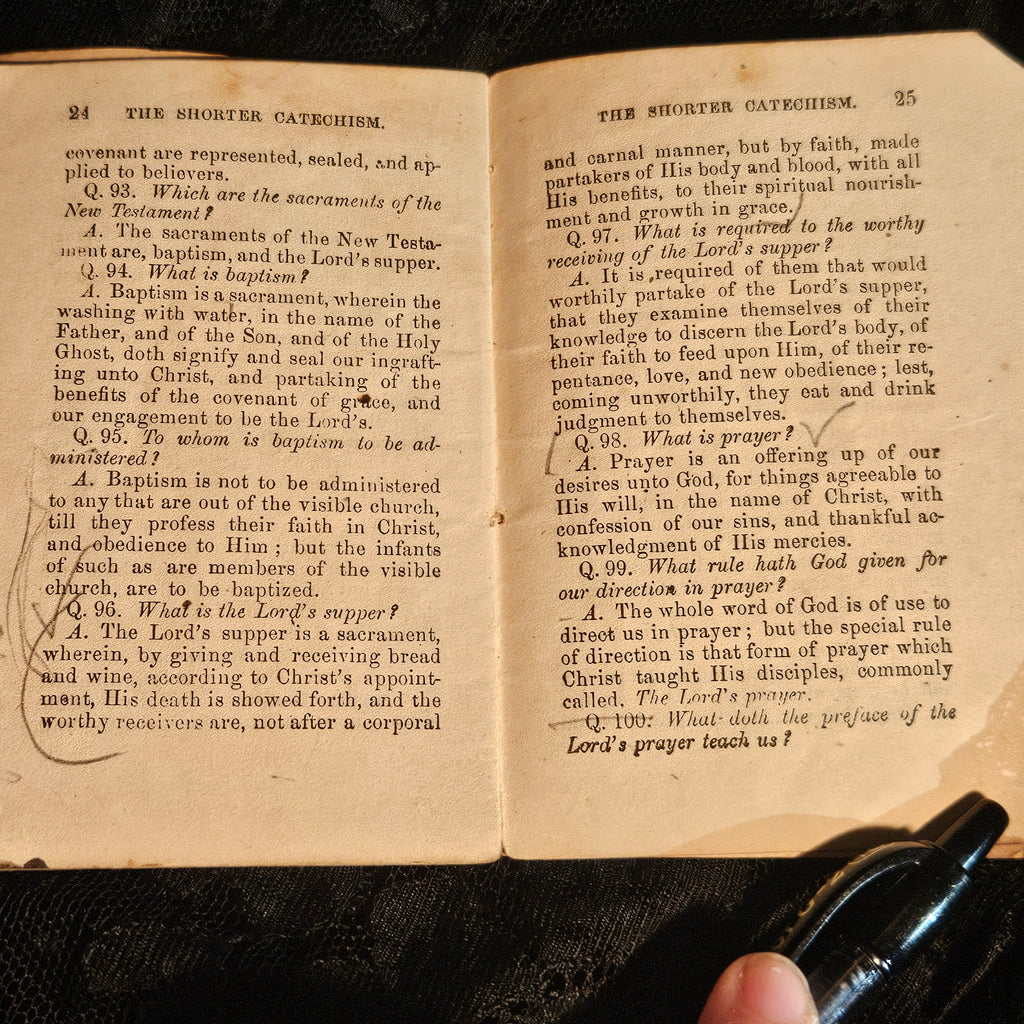 24 THE SHORTER CATECHISM.
covenant are represented, sealed, and ap-
plied to believers.
Q. 93. Which are the sacraments of the
New Testament?
A. The sacraments of the New Testa-
ment are, baptism, and the Lord's supper.
Q. 94. What is baptism?
A. Baptism is a sacrament, wherein the
washing with water, in the name of the
Father, and of the Son, and of the Holy
Ghost, doth signify and seal our ingraft-
ing unto Christ, and partaking of the
benefits of the covenant of grace, and
our engagement to be the Lord's.
Q. 95. To whom is baptism to be ad-
ministered?
A. Baptism is not to be administered
to any that are out of the visible church,
till they profess their faith in Christ,
and obedience to Him; but the infants
of such as are members of the visible
church, are to be baptized.
Q. 96. What is the Lord's supper?
A. The Lord's supper is a sacrament,
wherein, by giving and receiving bread
and wine, according to Christ's appoint-
ment, His death is showed forth, and the
worthy receivers are, not after a corporal
THE SHORTER CATECHISM. 25
and carnal manner, but by faith, made
partakers of His body and blood, with all
His benefits, to their spiritual nourish-
ment and growth in grace.
Q. 97. What is required to the worthy
receiving of the Lord's supper?
A. It is required of them that would
worthily partake of the Lord's supper,
that they examine themselves of their
knowledge to discern the Lord's body, of
their faith to feed upon Him, of their re-
pentance, love, and new obedience; lest,
coming unworthily, they eat and drink
judgment to themselves.
Q. 98. What is prayer?
A. Prayer is an offering up of our
desires unto God, for things agreeable to
His will, in the name of Christ, with
confession of our sins, and thankful ac-
knowledgment of His mercies.
Q. 99. What rule hath God given for
our direction in prayer?
A. The whole word of God is of use to
direct us in prayer; but the special rule
of direction is that form of prayer which
Christ taught His disciples, commonly
called, The Lord's prayer.
Q. 100. What doth the preface of the
Lord's prayer teach us?